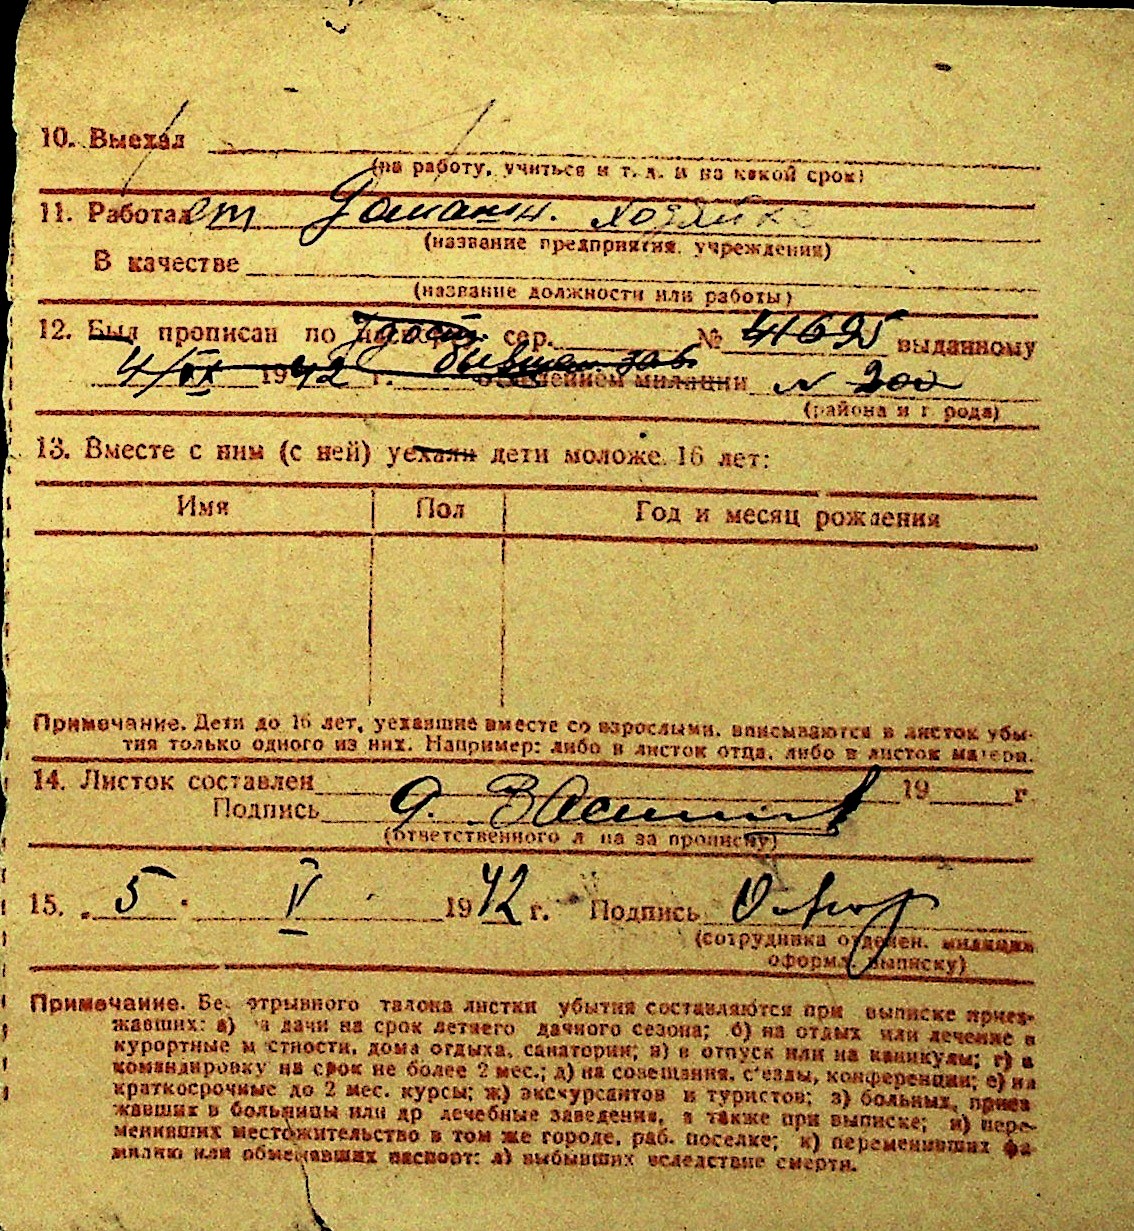 10. Выехал
(на работу, учиться и т. д. и на какой срок)
11. Работает Домашн. хозяйка
(название предприятия, учреждения)
В качестве
(название должности или работы)
12. Был прописан по удост. сер. № 41695 выданному
4/IX 1942 г. бывшем. зав. отделением милиции № 200
(района и города)
13. Вместе с ним (с ней) уехали дети моложе 16 лет:
Имя Пол Год и месяц рождения
Примечание. Дети до 16 лет, уехавшие вместе со взрослыми, вписываются в листок убы-
тия только одного из них. Например: либо в листок отца, либо в листок матери.
14. Листок составлен 19 г.
Подпись
(ответственного л на за прописку)
15. 5 V 1942 г. Подпись
(сотрудника отделен. милиции
оформ. выписку)
Примечание. Без отрывного талона листки убытия составляются при выписке приез-
жавших: а) на дачи на срок летнего дачного сезона; б) на отдых или лечение в
курортные местности, дома отдыха, санатории; в) в отпуск или на каникулы; г) в
командировку на срок не более 2 мес.; д) на совещания, с'езды, конференции; е) на
краткосрочные до 2 мес. курсы; ж) экскурсантов и туристов; з) больных, приез
жавших в больницы или др лечебные заведения, а также при выписке; и) пере-
менивших местожительство в том же городе, раб. поселке; к) переменивших фа-
милию или обменявших паспорт; л) выбывших вследствие смерти.